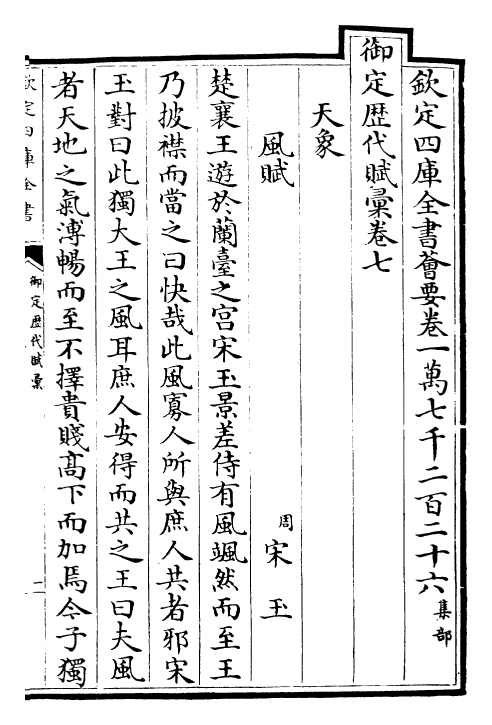 欽定四庫全書薈要卷一萬七千二百二十六集部
御定歴代賦彚卷七
天象
風賦
周宋玉
楚襄王遊於蘭臺之宫宋玉景差侍有風颯然而至王
乃披襟而當之曰快哉此風寡人所與庶人共者邪宋
玉對曰此獨大王之風耳庶人安得而共之王曰夫風
者天地之氣溥暢而至不擇貴賤髙下而加焉今子獨
欽定四庫全書
御定歴代賦彚